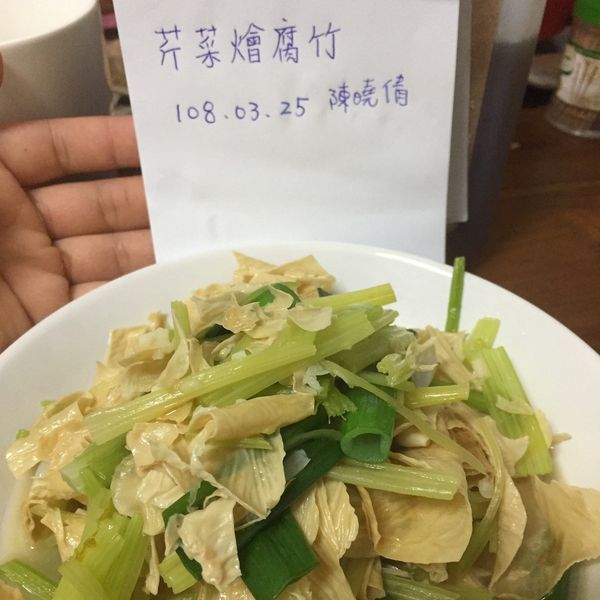 芹菜燴腐竹
108.03.25 陳曉倩